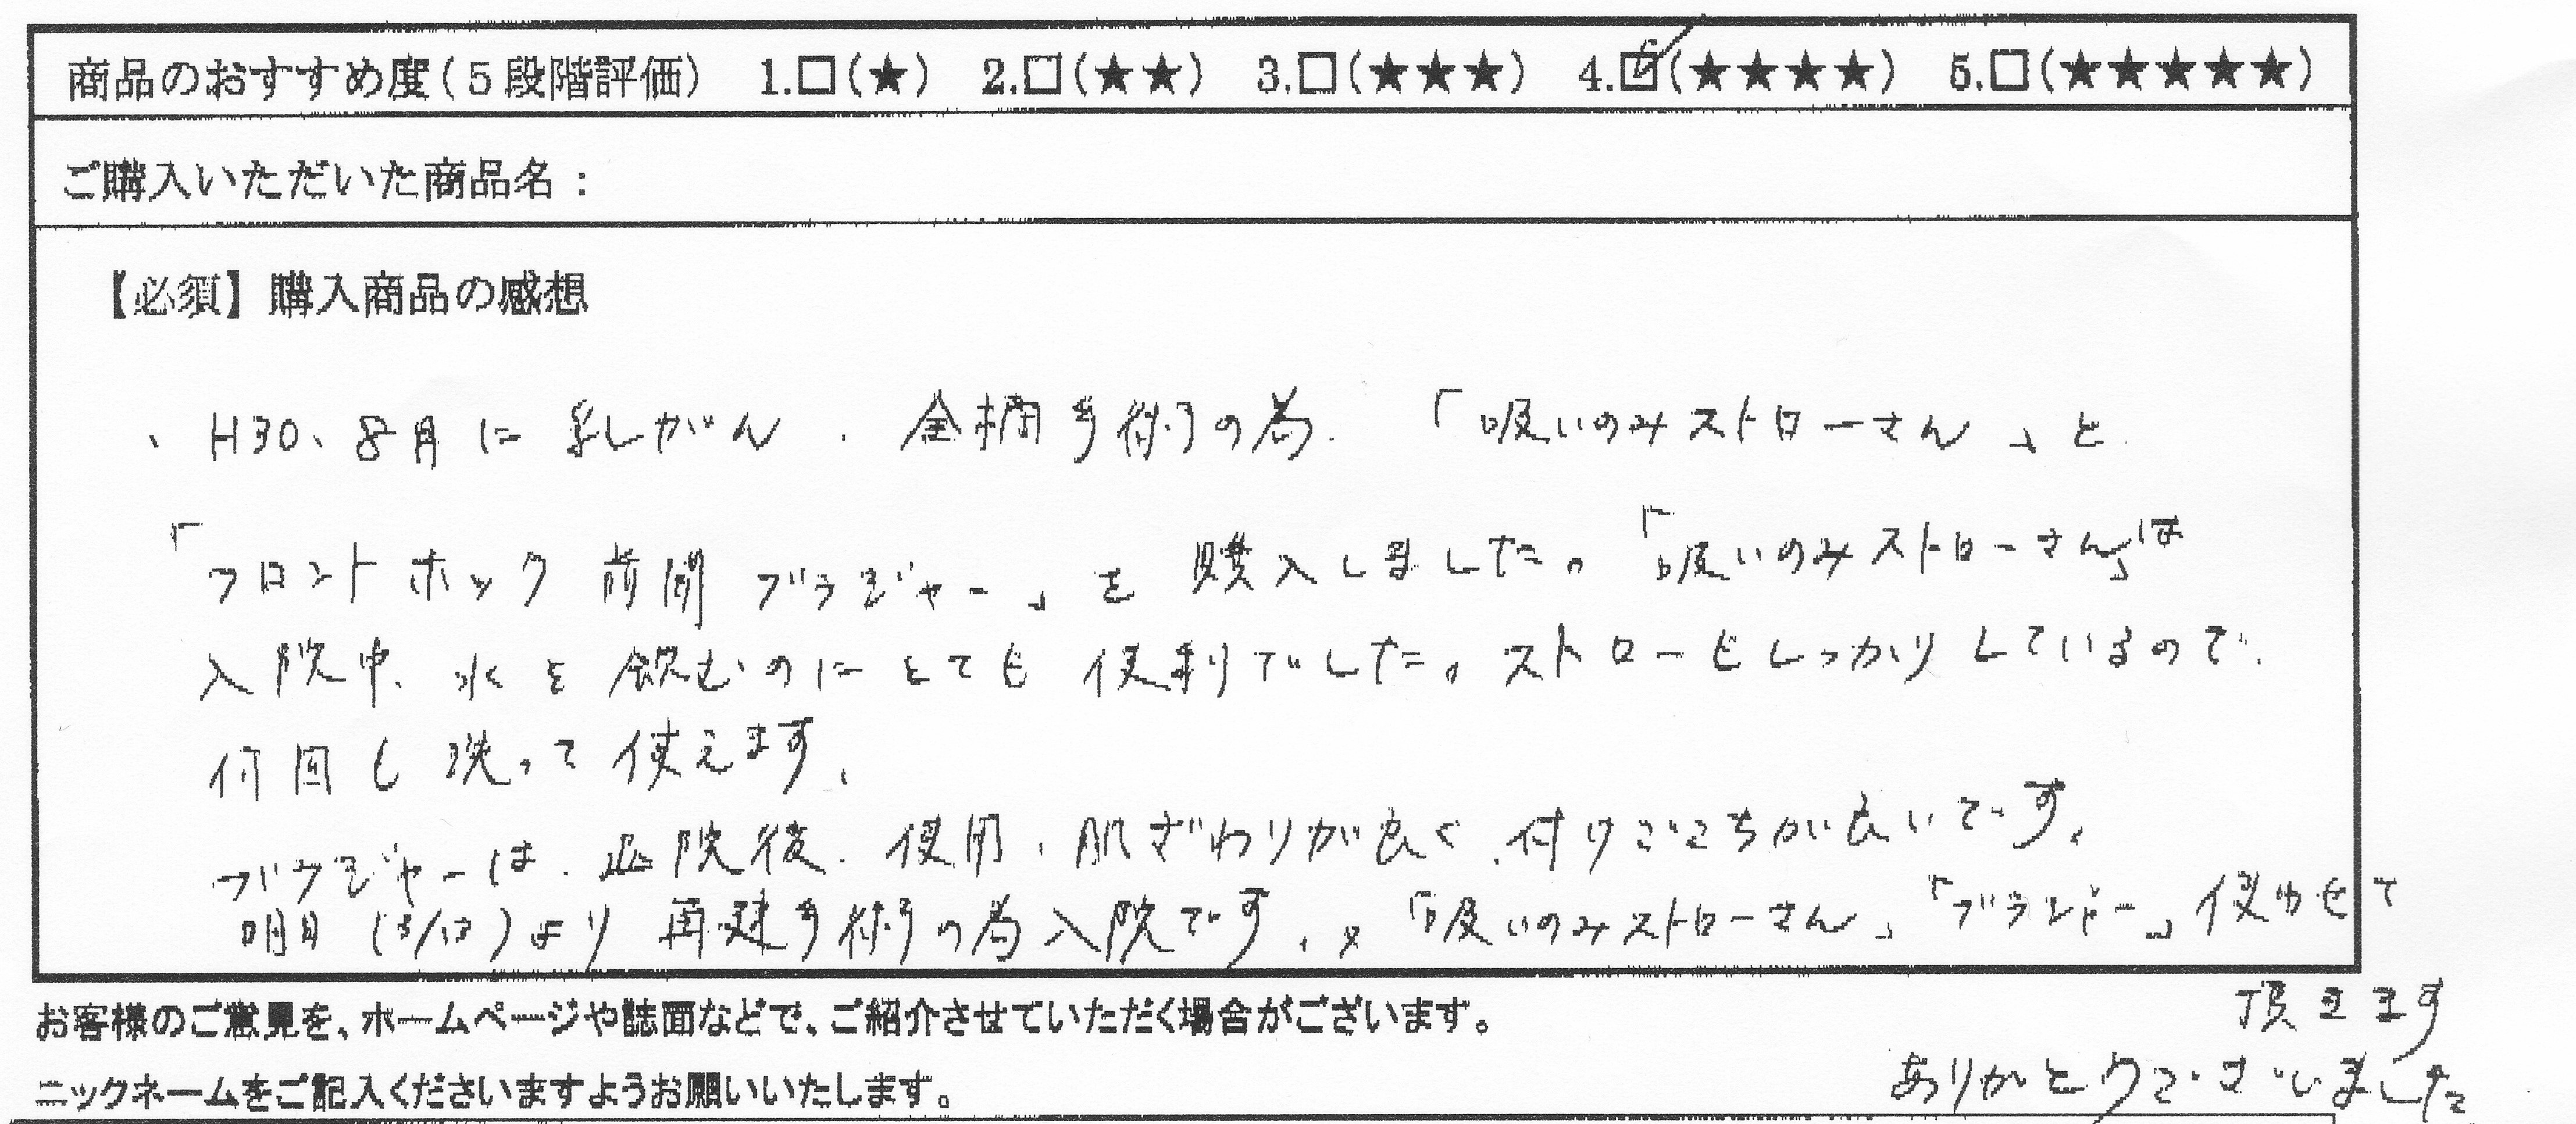 商品のおすすめ度(5段階評価) 1.□(★) 2.□(★★) 3.□(★★★) 4.☑(★★★★) 5.□(★★★★★)
ご購入いただいた商品名:
【必須】購入商品の感想
、H30、8月に乳がん、全摘手術の為、「吸いのみストローさん」と
「フロントホック 前開 ブラジャー」を購入しました。「吸いのみストローさん」は
入院中、水を飲むのにとても便利でした。ストローもしっかりしているので、
何回も洗って使えます、
ブラジャーは、退院後、使用、肌ざわりが良く、付けごこちが良いです。
明日 より 再建手術の為入院です、又「吸いのみストローさん」「ブラジャー」使わせて
頂きます
ありがとうございました
お客様のご意見を、ホームページや誌面などで、ご紹介させていただく場合がございます。
ニックネームをご記入くださいますようお願いいたします。